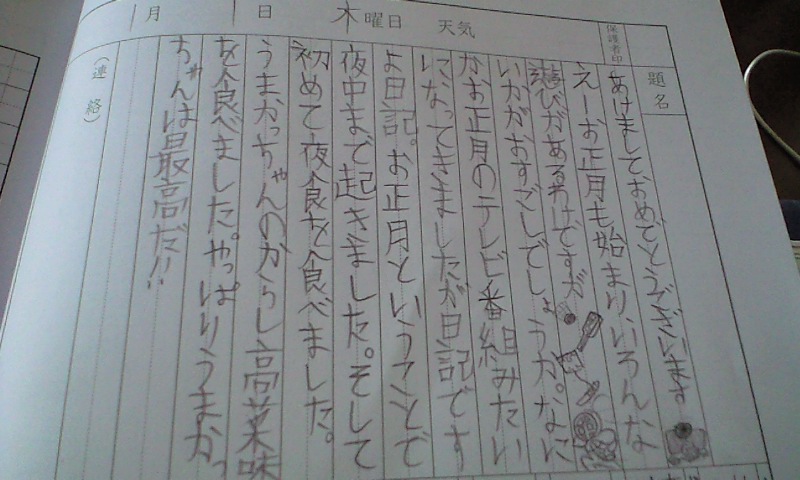 月 日 木曜日 天気
保護者印
題名
あけましておめでとうございます
えーお正月も始まり、いろんな
遊びがあるわけですが
いかがおすごしでしょうか。なに
かお正月のテレビ番組みたい
になってきましたが日記です
よ日記。お正月ということで
夜中まで起きました。そして
初めて夜食を食べました。
うまかっちゃんのからし高菜味
を食べました。やっぱりうまかっ
ちゃんは最高だ!!
(連絡)